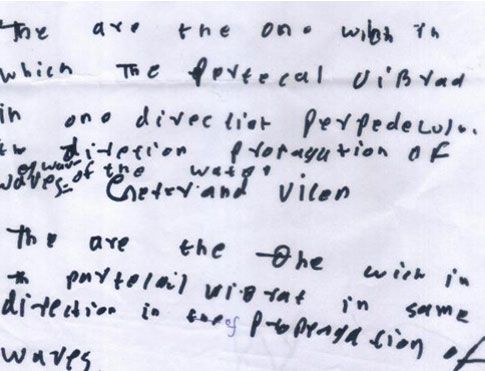 The are the one with in
which The Pertecal viBrad
in one direction perpedecular
the direction Propagation of
waves of the water
and vilon
The are the One wich in
the partelail vibrat in same
direction in Propregation of
waves